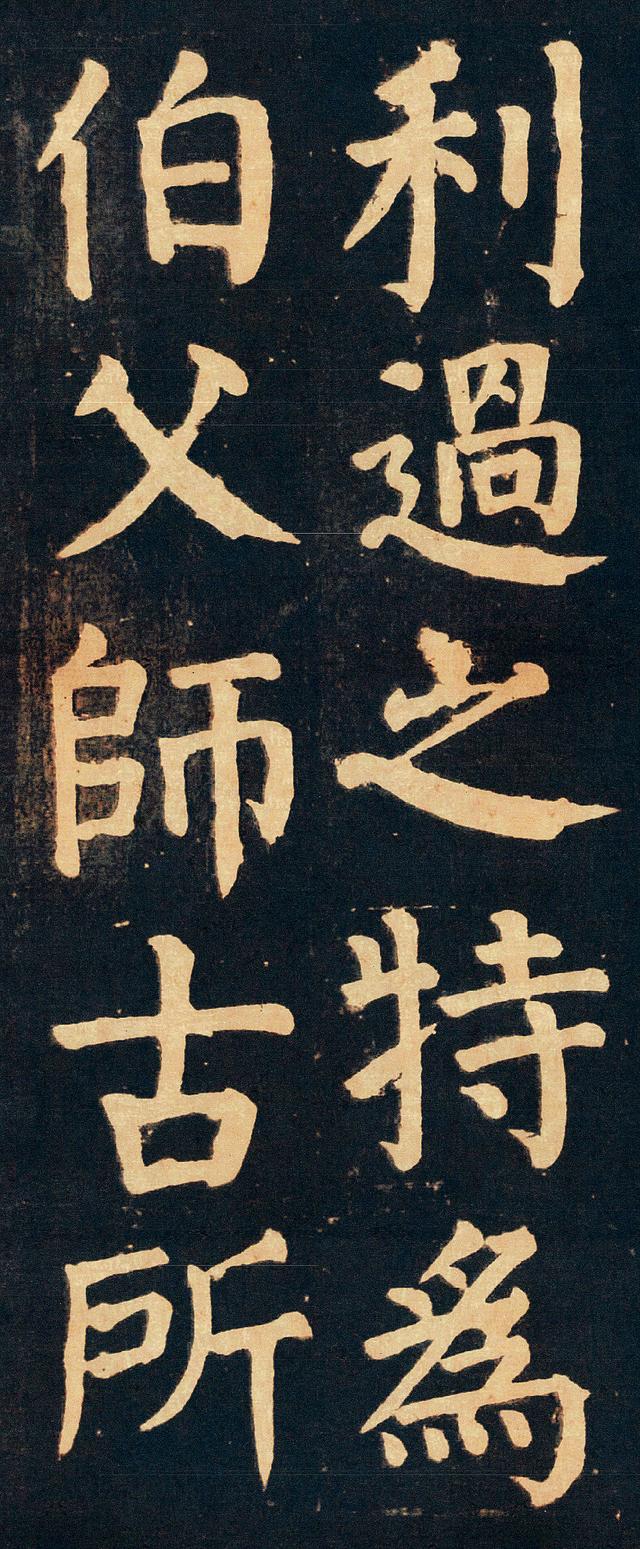 利過之特為
伯父師古所